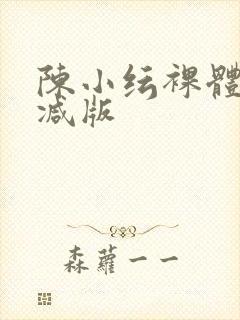 陳小纭裸體
减版
森蘿一一